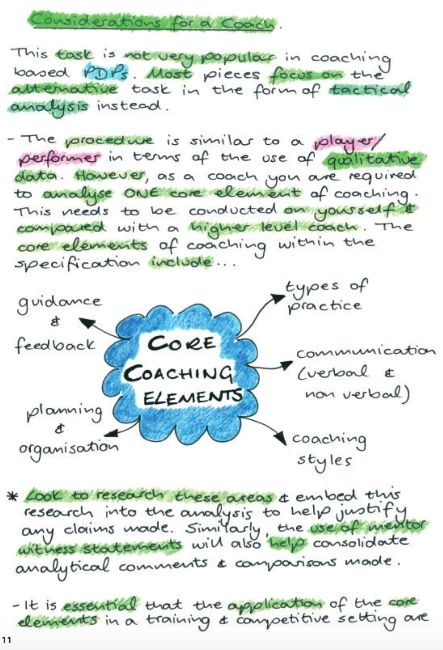 Considerations for a Coach.
This task is not very popular in coaching
based PDPs. Most pieces focus on the
alternative task in the form of tactical
analysis instead.
- The procedure is similar to a player/
performer in terms of the use of qualitative
data. However, as a coach you are required
to analyse ONE core element of coaching.
This needs to be conducted on yourself &
compared with a higher level coach. The
core elements of coaching within the
specification include...
guidance
&
feedback
types of
practice
CORE
COACHING
ELEMENTS
communication
(verbal &
non verbal)
planning
&
organisation
coaching
styles
* Look to research these areas & embed this
research into the analysis to help justify
any claims made. Similarly, the use of mentor
witness statements will also help consolidate
analytical comments & comparisons made.
- It is essential that the application of the core
elements in a training & competitive setting are
11